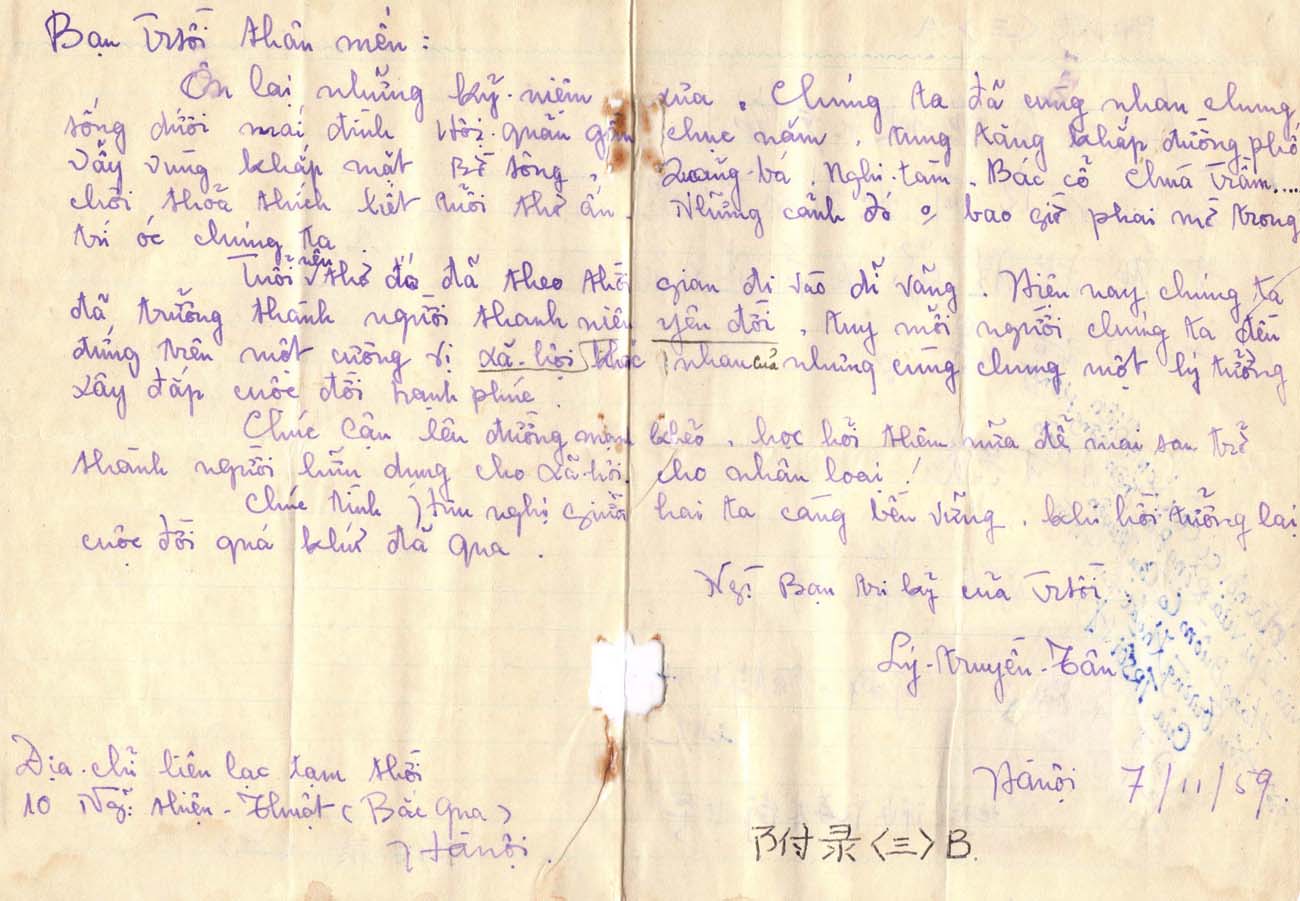 Bạn Trôi thân mến :
Ôn lại những kỷ-niệm xưa. Chúng ta đã cùng nhau chung
sống dưới mái đình Hội-quán gần chục năm, tung tăng khắp đường phố
vẫy vùng khắp mặt Bể sông, Quảng-bá, Nghi-tàm, Bác cổ Chùa Trầm....
chơi thỏa thích hết tuổi thơ ấu. Những cảnh đó bao giờ phai mờ trong
trí óc chúng ta.
Tuổi nên thơ đó đã theo thời gian đi vào dĩ vãng. Hiện nay chúng ta
đã trưởng thành người thanh niên yêu đời, tuy mỗi người chúng ta đều
đứng trên một cương vị xã-hội khác nhau của nhưng cùng chung một lý tưởng
xây đắp cuộc đời hạnh phúc.
Chúc Cậu lên đường mạnh khỏe, học hỏi thêm nữa để mai sau trở
thành người hữu dụng cho xã-hội cho nhân loại !
Chúc tình hữu nghị giữa hai ta càng bền vững, khi hồi tưởng lại
cuộc đời quá khứ đã qua.
Ng: Bạn tri kỷ của Trôi
Lý-Truyền-Tân
Địa-chỉ liên lạc tạm thời
10 Ng: thiện-Thuật (Bắc Qua)
Hànội.
Hànội 7/11/59.
附录〈三〉B.